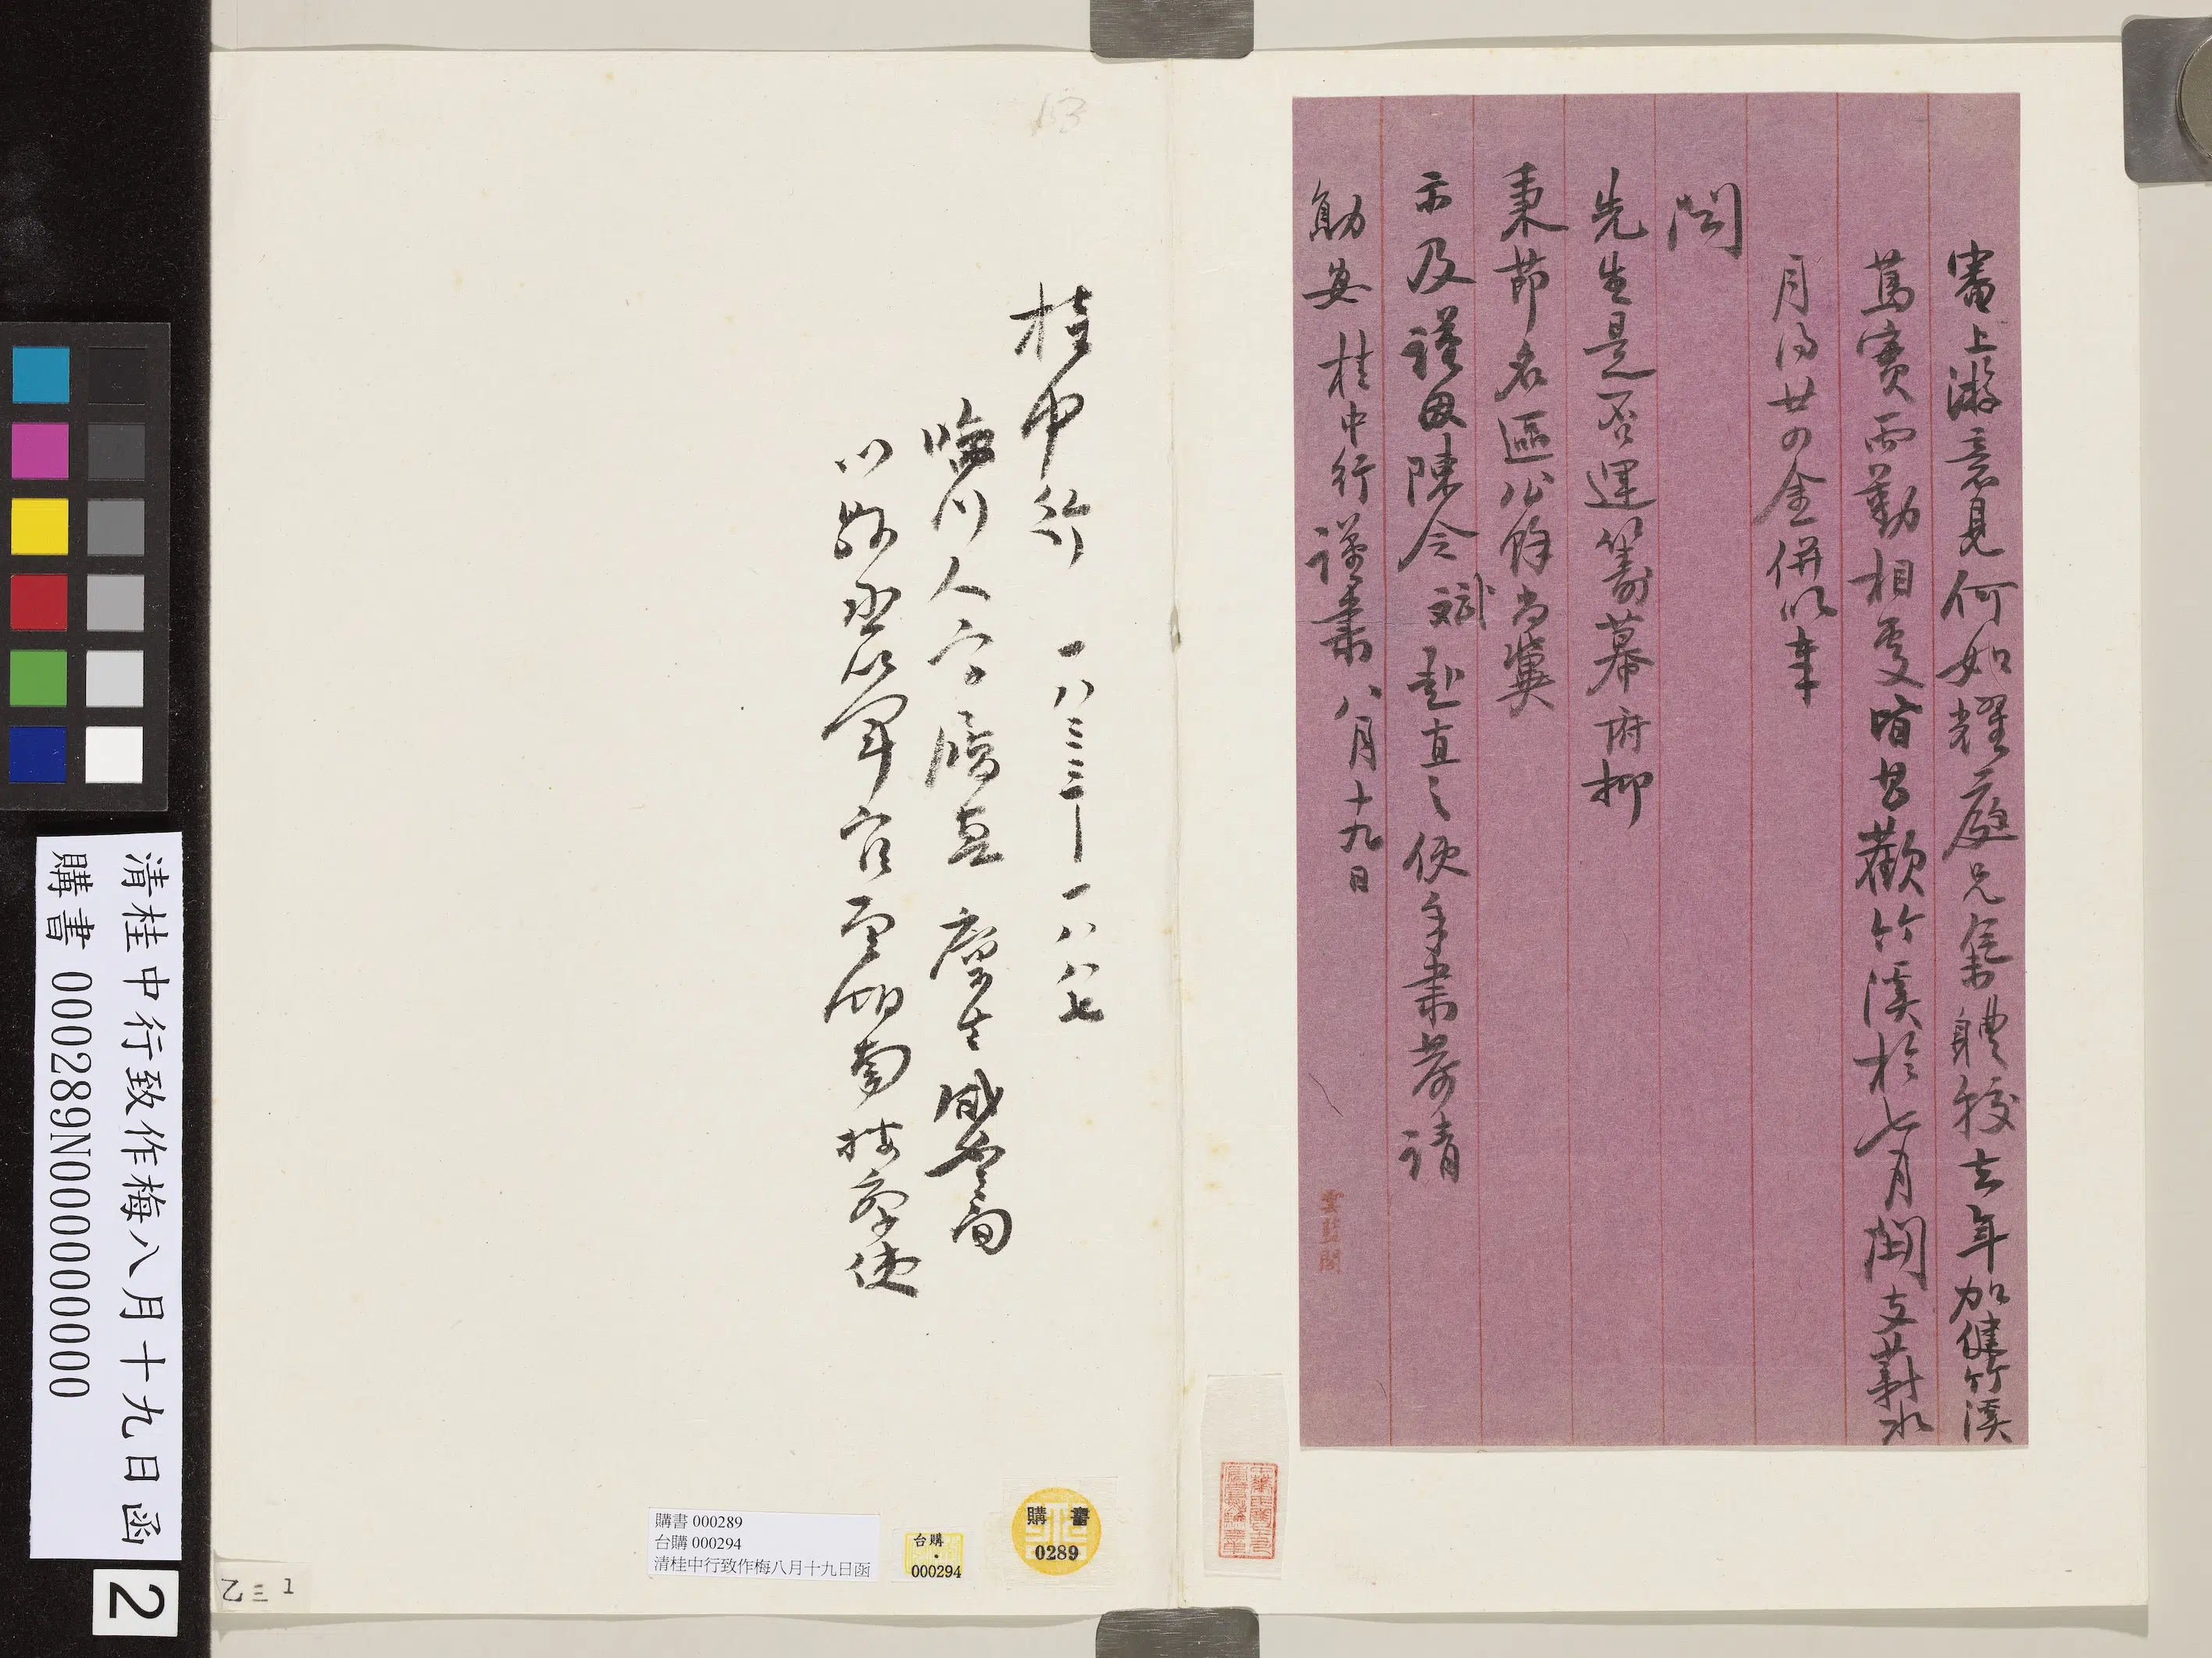 審上游意見何如耀庭兄氣體較去年加健竹溪
篤實而勤相處皆甚歡竹溪於七月開支薪水
月得廿四金併以奉
聞
先生是否運籌幕府抑
秉節名區公餘尚冀
示及謹因陳令斌赴直之便手肅恭請
勛安桂中行謹肅八月十九日
雲藍閣
桂中行 一八三三—一八八七
臨川人字履真 廪生 咸豐間
以縣丞從軍官至湖南按察使
13
購書 0289
台購・000294
購書 000289
台購 000294
清桂中行致作梅八月十九日函
乙三 1
清桂中行致作梅八月十九日函
購書 000289N000000000
2